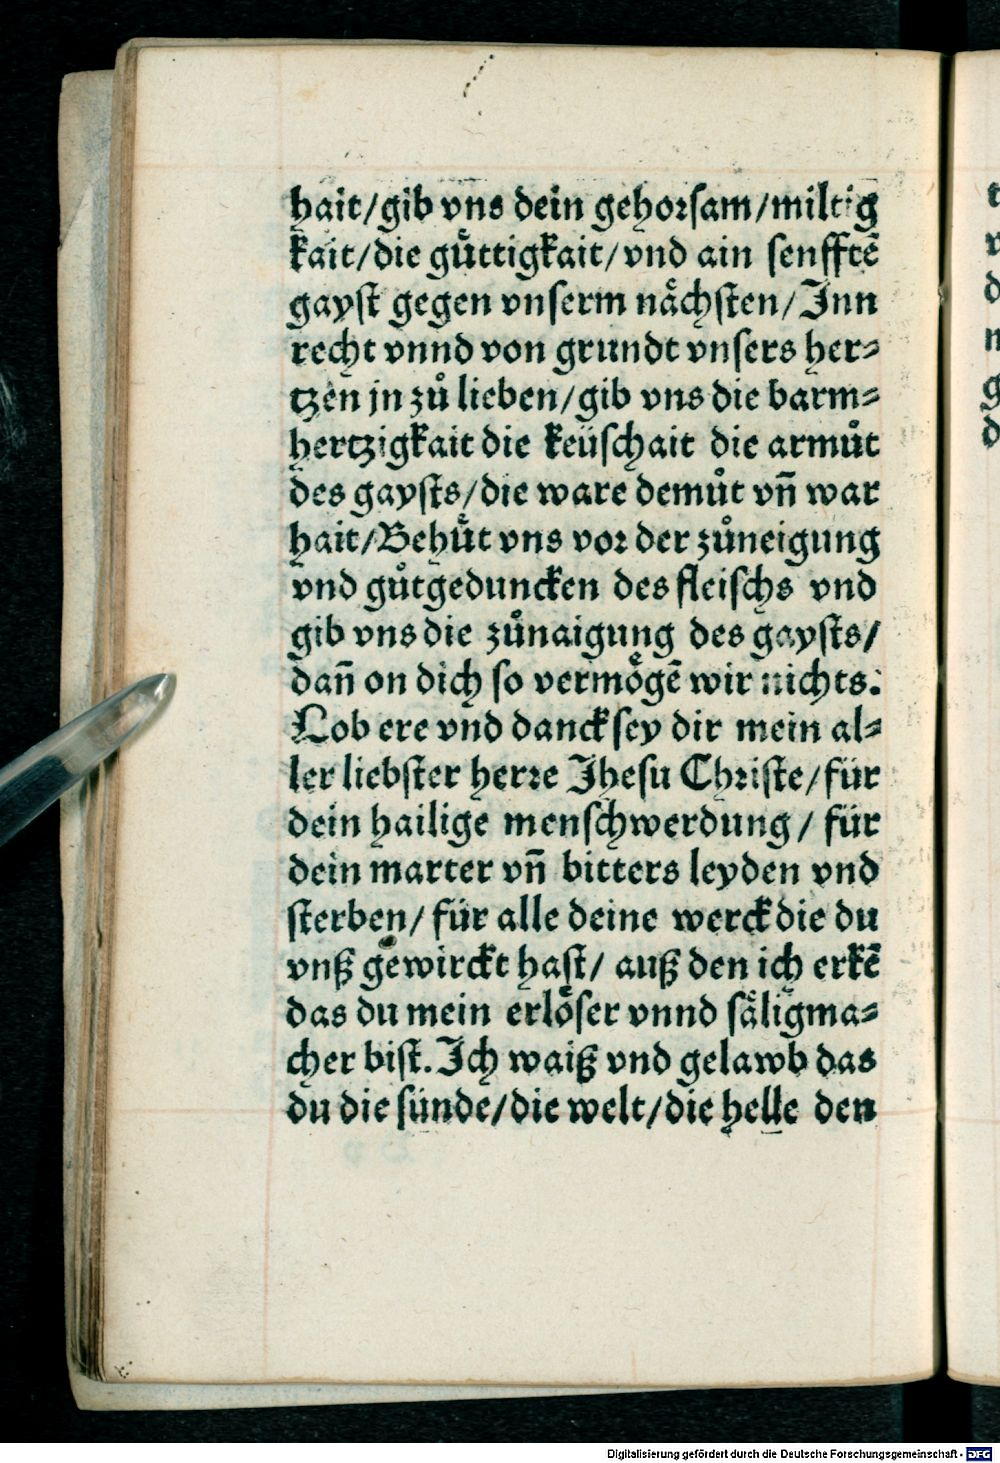 hait/gib vns dein gehorſam/miltig
kait/die guͤttigkait/vnd ain ſenfftē
gayſt gegen vnſerm naͤchſten/Inn
recht vnnd von grundt vnſers her⸗
tzen jn zuͦ lieben/gib vns die barm⸗
hertzigkait die keüſchait die armuͦt
des gayſts/die ware demuͦt vn̄ war
hait/Behuͤt vns vor der zuͦneigung
vnd guͦtgeduncken des fleiſchs vnd
gib vns die zuͦnaigung des gayſts/
dan̄ on dich ſo vermoͤgē wir nichts.
Lob ere vnd danck ſey dir mein al⸗
ler liebſter herre Jheſu Chriſte/für
dein hailige menſchwerdung/ für
dein marter vn̄ bitters leyden vnd
ſterben/ für alle deine werck die du
vnß gewirckt haſt/ auß den ich erkē
das du mein erloͤſer vnnd ſaͤligma⸗
cher biſt. Ich waiß vnd gelawb das
du die ſünde/die welt/die helle den
Digitalisierung gefördert durch die Deutsche Forschungsgemeinschaft - DFG